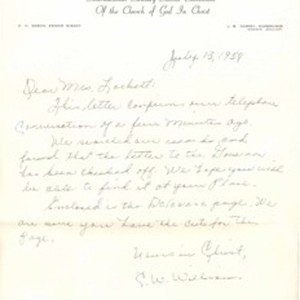 Of the Church of God In Christ
July 13, 1959
Dear Mrs. Lockett:
This letter confirms our telephone
conversation of a few minutes ago
We searched our records and
found that the letter to the Governor
has been checked off. We hope you will
be able to find it at your place.
Enclosed is the Delaware page. We
are sure you have the cuts for the
Page.
Yours in Christ,
C. W. Williams